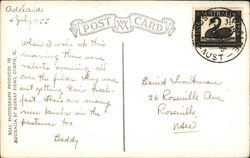 Adelaide
4 July 55
POST CARD
When I woke up this
morning there were
rabbits running all
over the paddocks. They were
out getting their break-
fast. There are many
new lambs in the
pastures too
Daddy
David
26 Roseville Ave
Roseville
NSW
REAL PHOTOGRAPH PRODUCED IN
AUSTRALIA BY MURRAY VIEWS, GYMPIE, Q.
AUST